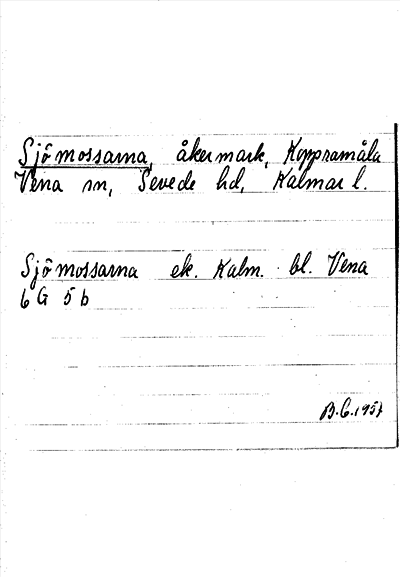 Sjömossarna, åkermark, Koppramåla
Vena sn, Sevede hd, Kalmar l.
Sjömossarna ek. Kalm. bl. Vena
6 G 5 b
B.G. 1957